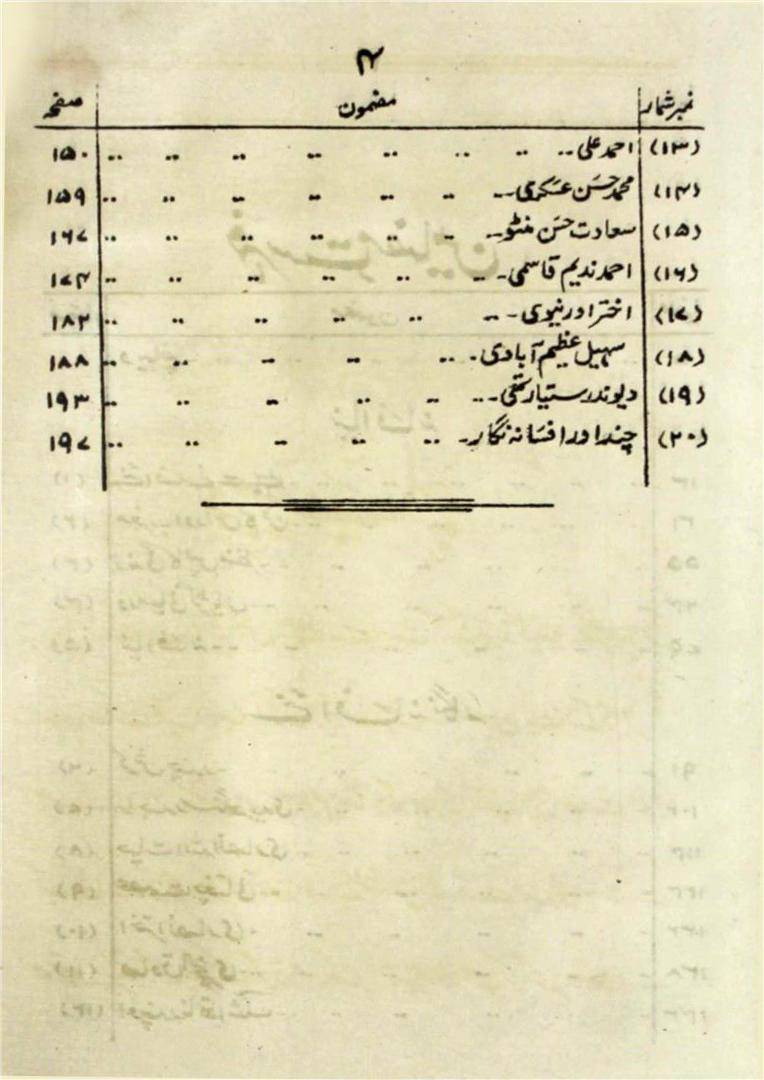 ۴
نمبر شمار مضمون صفحہ
(۱۳) احمد علی ۱۵۰
(۱۴) محمد حسن عسکری ۱۵۹
(۱۵) سعادت حسن منٹو ۱۶۷
(۱۶) احمد ندیم قاسمی ۱۷۴
(۱۷) اختر اورنیوی ۱۸۲
(۱۸) سہیل عظیم آبادی ۱۸۸
(۱۹) دیوندر ستیارتھی ۱۹۳
(۲۰) چند اور افسانہ نگار ۱۹۷